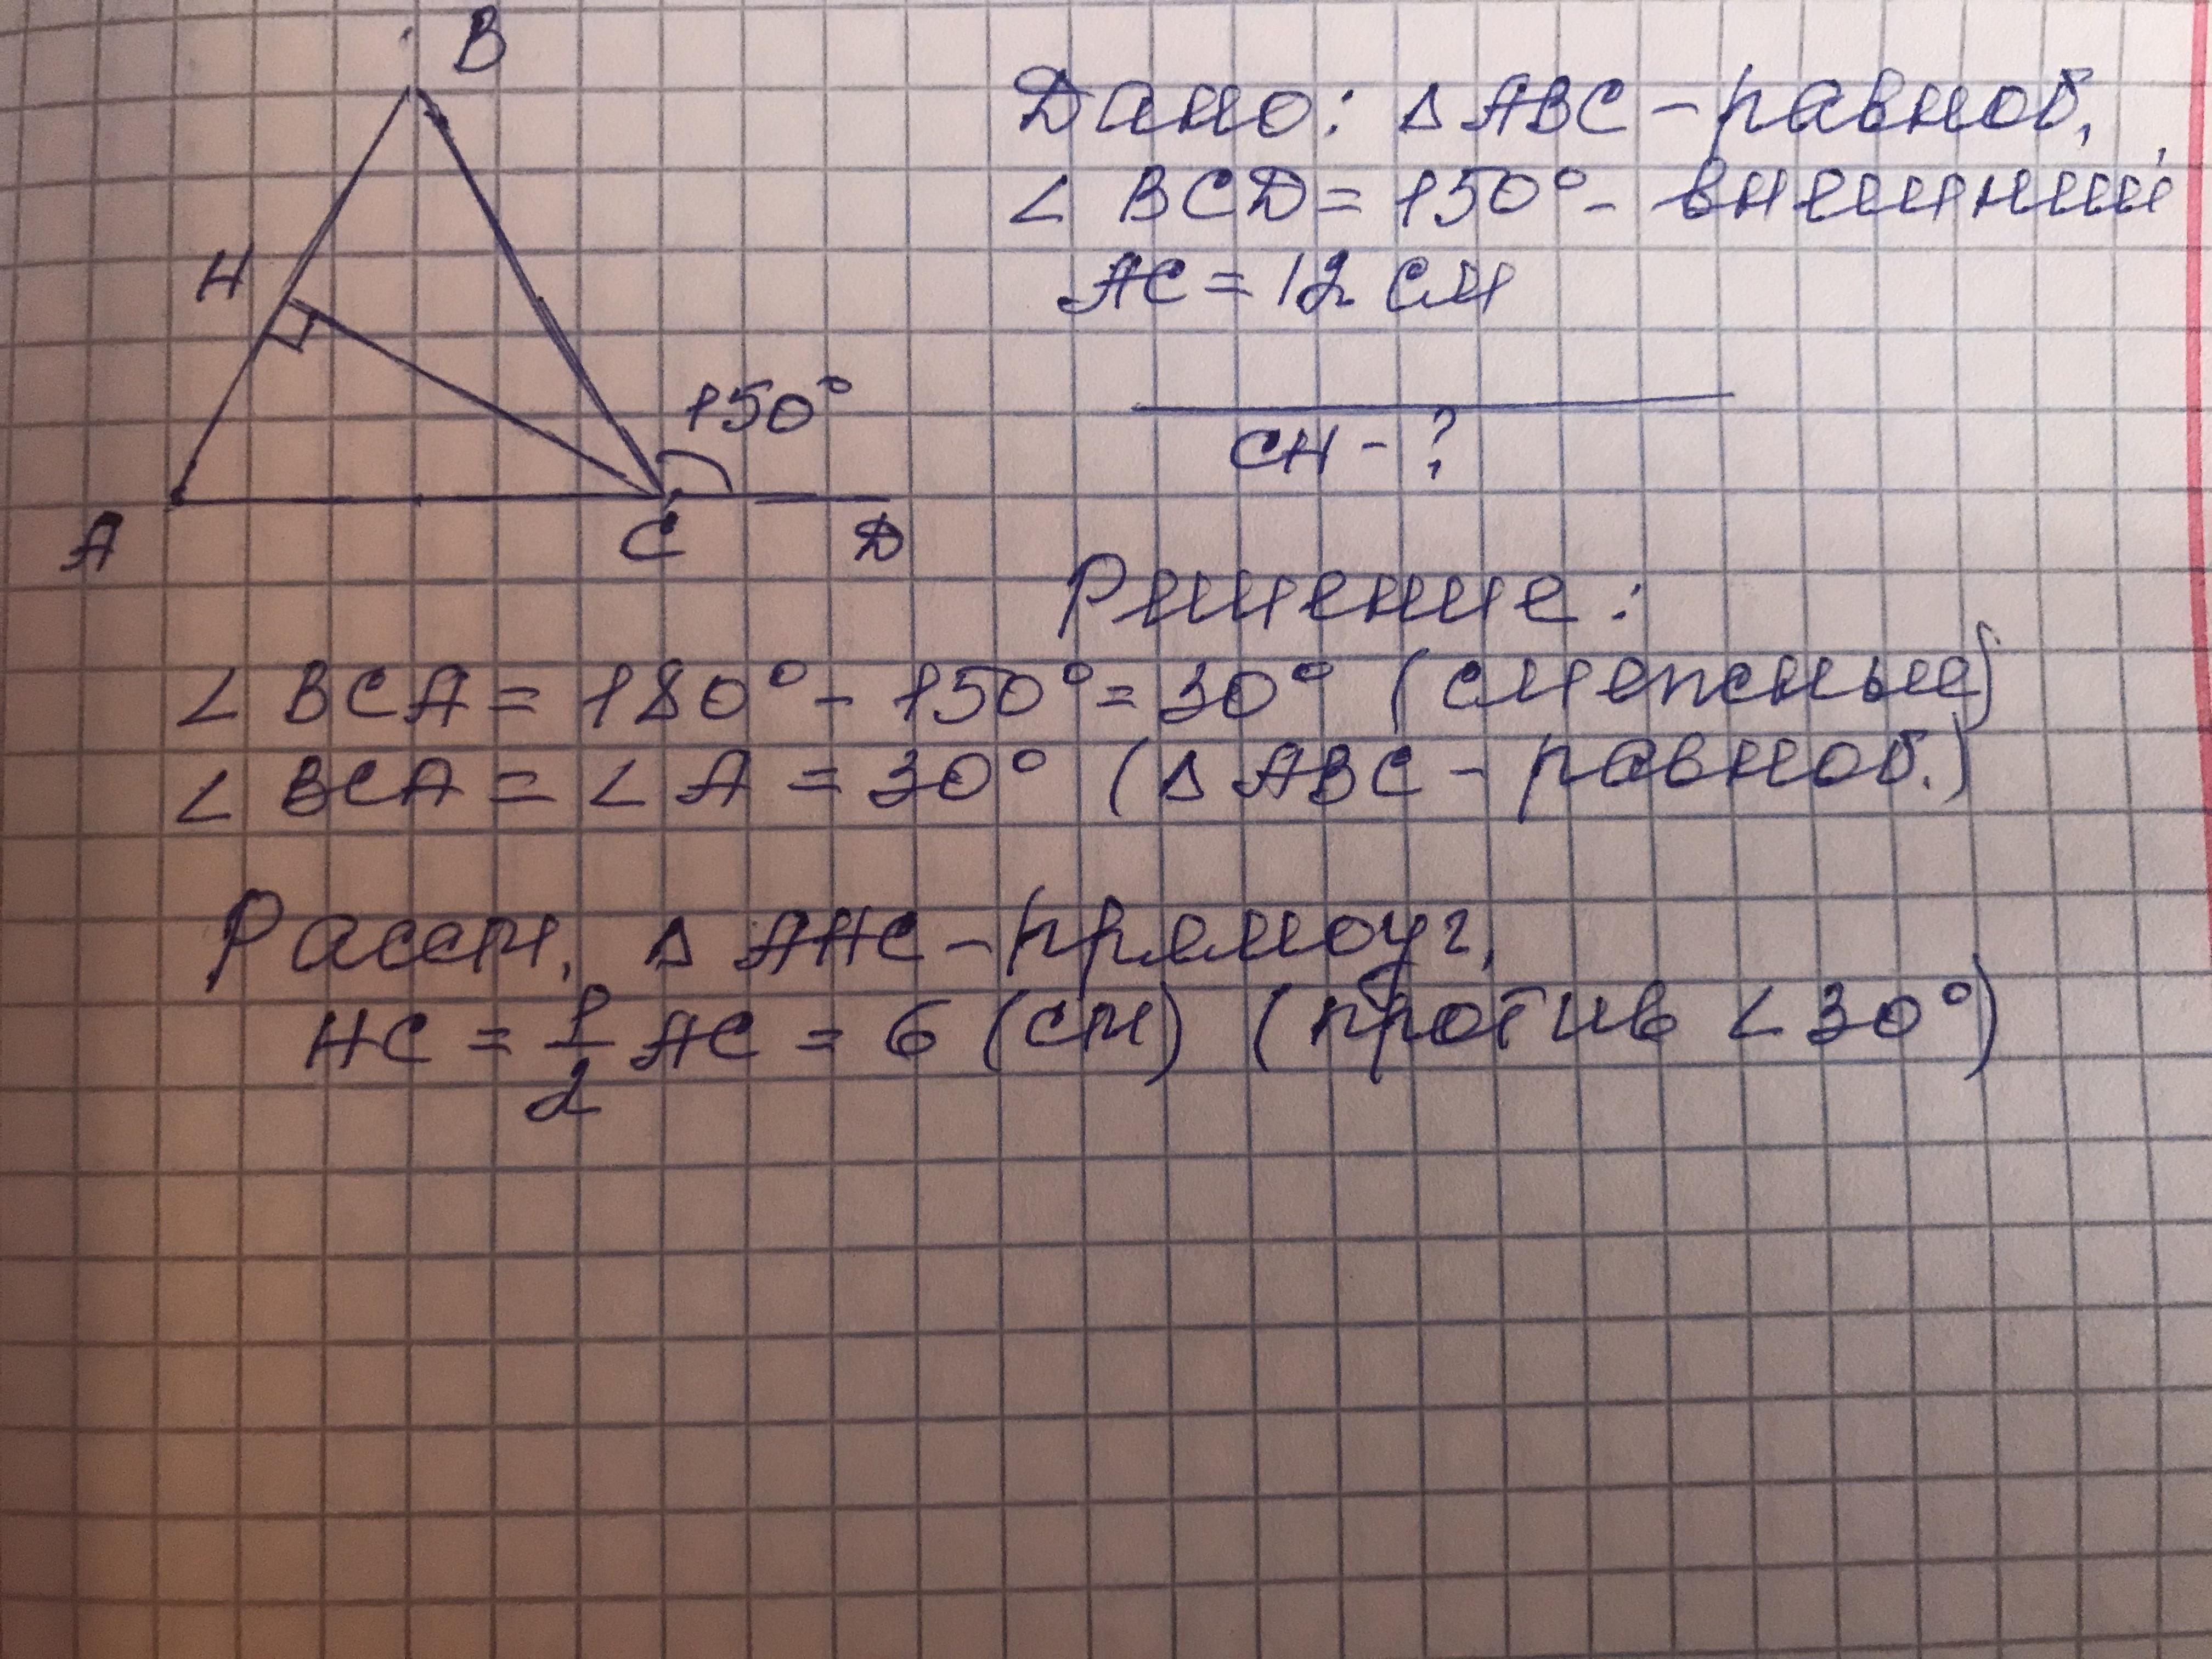 B
H
150°
A
C
D
Дано: Δ ABC - равноб,
∠ BCD = 150° - внешний,
AC = 12 см
CH - ?
Решение:
∠ BCA = 180° - 150° = 30° (смежные)
∠ BCA = ∠ A = 30° (Δ ABC - равноб.)
Рассм. Δ AHC - прямоуг,
HC = 1/2 AC = 6 (см) (против ∠ 30°)